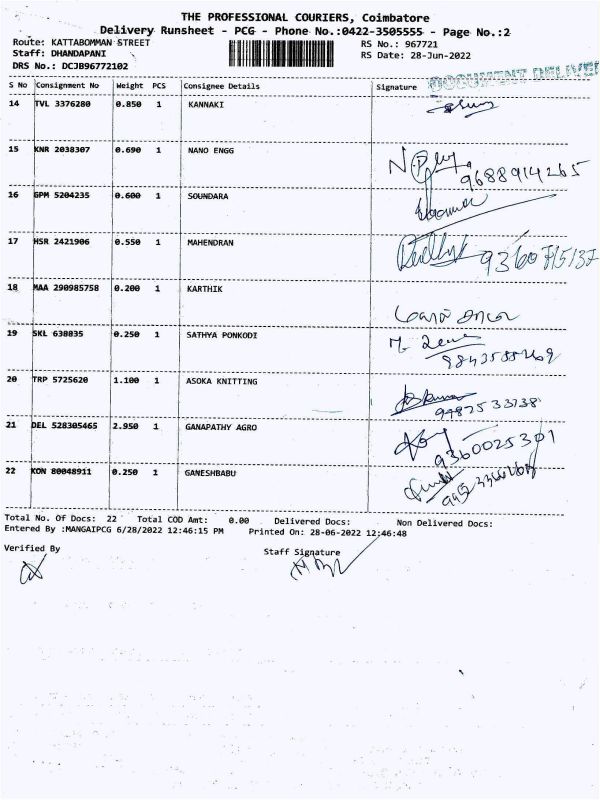 THE PROFESSIONAL COURIERS, Coimbatore
Delivery Runsheet - PCG - Phone No.:0422-3505555 - Page No.:2
Route: KATTABOMMAN STREET RS No.: 967721
Staff: DHANDAPANI RS Date: 28-Jun-2022
DRS No.: DCJB96772102
DOCUMENT DELIVER
S No Consignment No Weight PCS Consignee Details Signature
14 TVL 3376280 0.850 1 KANNAKI
15 KNR 2038307 0.690 1 NANO ENGG
9688914265
16 GPM 5204235 0.600 1 SOUNDARA
17 HSR 2421906 0.550 1 MAHENDRAN
9360715137
18 MAA 290985758 0.200 1 KARTHIK
19 SKL 638835 0.250 1 SATHYA PONKODI
20 TRP 5725620 1.100 1 ASOKA KNITTING
9487533738
21 DEL 528305465 2.950 1 GANAPATHY AGRO
9360025301
22 KON 80048911 0.250 1 GANESHBABU
Total No. Of Docs: 22 Total COD Amt: 0.00 Delivered Docs: Non Delivered Docs:
Entered By :MANGAIPCG 6/28/2022 12:46:15 PM Printed On: 28-06-2022 12:46:48
Verified By Staff Signature